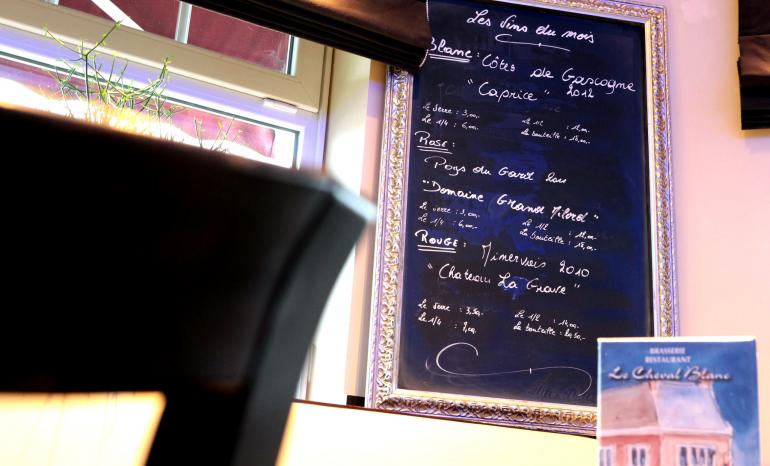 Les Vins du mois
Blanc : Côtes de Gascogne
"Caprice" 2012
Le verre : 3,00.- Le 1/2 : 11,00.-
Le 1/4 : 6,00.- La bouteille :
Rosé :
Pays du Gard
"Domaine Grand Milord"
Le verre : 3,00.- Le 1/2 : 11,00.-
Le 1/4 : 6,00.- La bouteille :
Rouge : Minervois 2010
"Chateau La Grave"
Le verre : 3,50.- Le 1/2 :
Le 1/4 : La bouteille :
BRASSERIE
RESTAURANT
Le Cheval Blanc